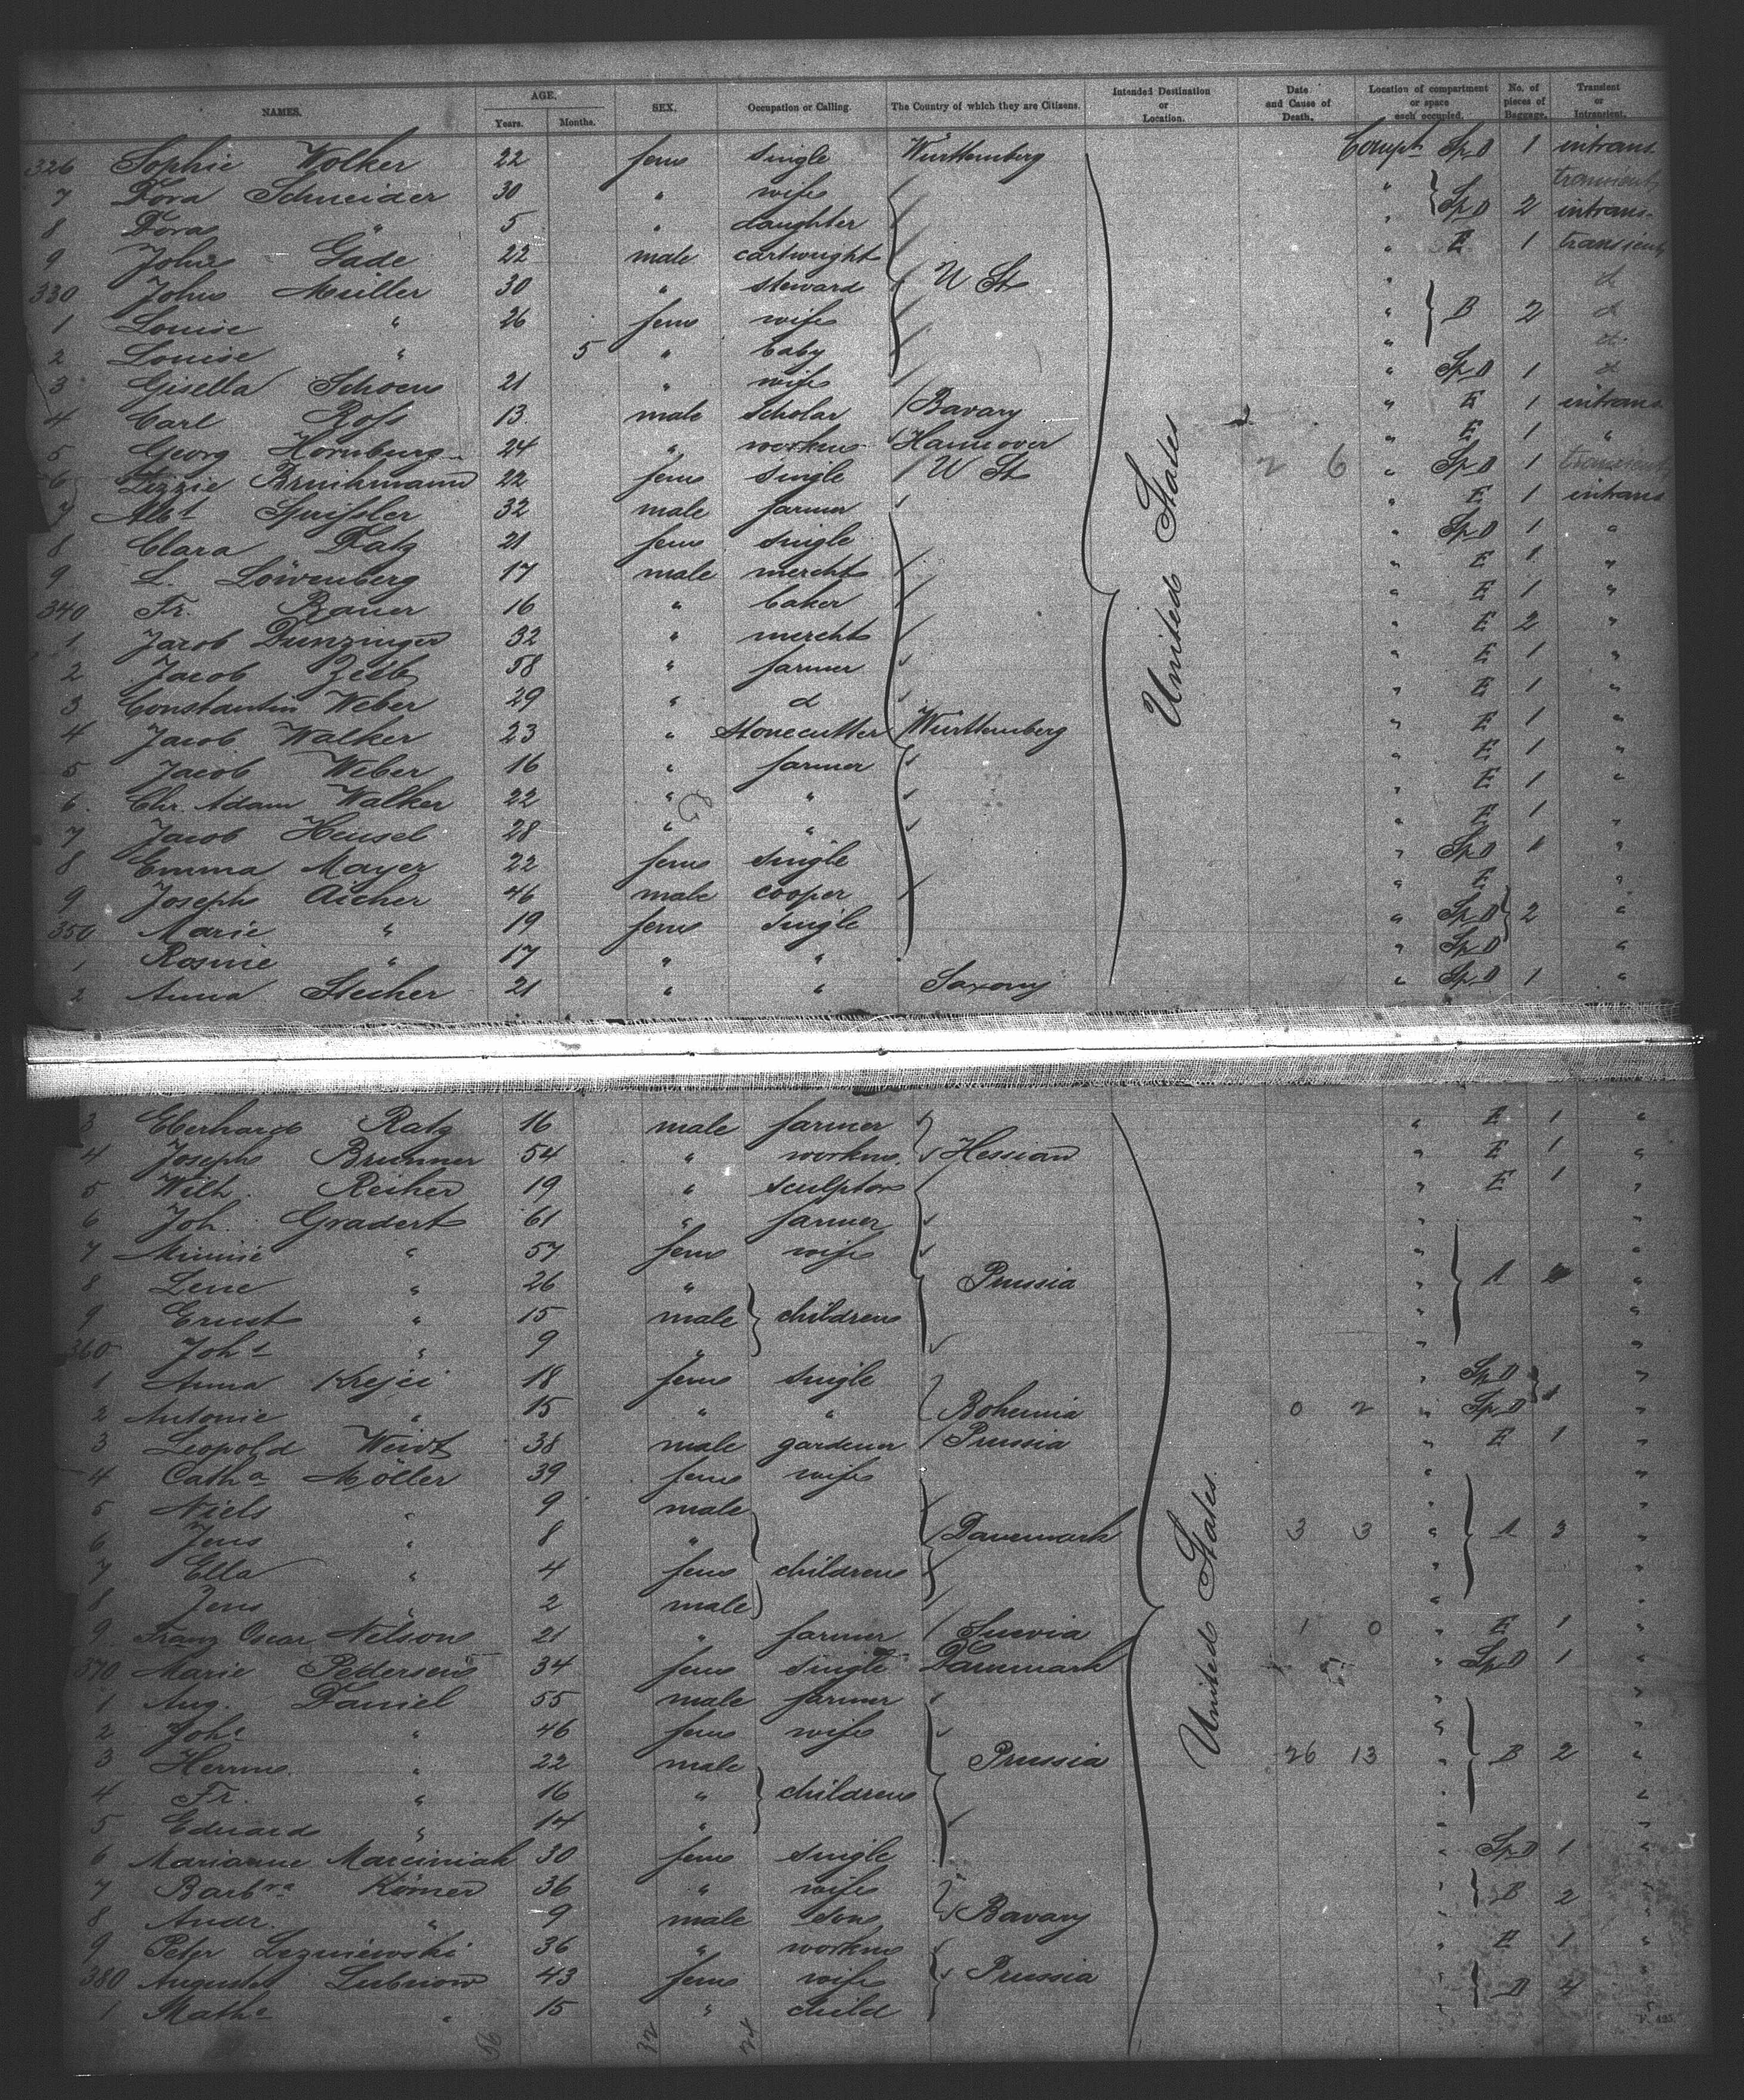 NAMES. AGE. Years. Months. SEX. Occupation or Calling. The Country of which they are Citizens. Intended Destination or Location. Date and Cause of Death. Location of compartment or space each occupied. No. of pieces of Baggage. Transient or Intransient.
326 Sophie Wolker 22 fem single Württemberg Compt Sp D 1 intrans
7 Dora Schneider 30 " wife " transient
8 Dora " 5 " daughter " Sp D 2 intrans.
9 John Gade 22 male cartwright " E 1 transient
330 John Müller 30 " steward U St " d
1 Louise " 26 fem wife " B 2 d
2 Louise " 5 " baby " d
3 Gisella Schoen 21 " wife " Sp D 1 d
4 Carl Roß 13 male scholar Bavary " E 1 intrans
5 Georg Hornburg 24 " workm Hannover " E 1 "
6 Lizzie Brinkmann 22 fem single U St 2 6 " Sp D 1 transient
7 Albt 32 male farmer " E 1 intrans
8 Clara 21 fem single " Sp D 1 "
9 L. Löwenberg 17 male mercht " E 1 "
340 Fr. Bauer 16 " baker " E 1 "
1 Jacob Dunzinger 32 " mercht " E 2 "
2 Jacob 58 " farmer " E 1 "
3 Constantin Weber 29 " d " E 1 "
4 Jacob Walker 23 " Stonecutter Württemberg " E 1 "
5 Jacob Weber 16 " farmer " E 1 "
6. Chr. Adam Walker 22 " " " E 1 "
7 Jacob Hensel 28 " " " E 1 "
8 Emma Mayer 22 fem single " Sp D 1 "
9 Joseph Aicher 46 male cooper " E "
350 Marie " 19 fem single " Sp D 2 "
1 Rosine " 17 " " " Sp D "
2 Anna Stecher 21 " " Saxony " Sp D 1 "
United States
3 Eberhard Ratz 16 male farmer " E 1 "
4 Joseph Brunner 54 " workm. Hessian " E 1 "
5 Wilh. Reiker 19 " sculptor " E 1 "
6 Joh. Gradert 61 " farmer " "
7 Minnie " 57 fem wife " "
8 Lene " 26 " Prussia " A "
9 Ernst " 15 male children " "
360 Joht " 9 " " "
1 Anna Krejci 18 fem single " Sp D "
2 Antonie " 15 " " Bohemia 0 2 " Sp D 1 "
3 Leopold Weidt 38 male gardener Prussia " E 1 "
4 Catha Möller 39 fem wife " "
5 Niels " 9 male " "
6 Jens " 8 " Danemark 3 3 " A 3 "
7 Ella " 4 fem children " "
8 Jens " 2 male " "
9 Franz Oscar Nelson 21 " farmer Suevia 1 0 " E 1 "
370 Marie Pedersen 34 fem single Danemark " Sp D 1 "
1 Aug. Daniel 55 male farmer " "
2 Joha " 46 fem wife " "
3 Herrm. " 22 male Prussia 26 13 " B 2 "
4 Fr. " 16 " children " "
5 Eduard " 14 " " "
6 Marianne Marciniak 30 fem single " Sp D 1 "
7 Barbra Körner 36 " wife " B 2 "
8 Andr. " 9 male son Bavary " "
9 Peter Lezniewski 36 " workm " E 1 "
380 Auguste Lubnow 43 fem wife Prussia " D 4 "
1 Matha " 15 " child " "
United States.
32 24